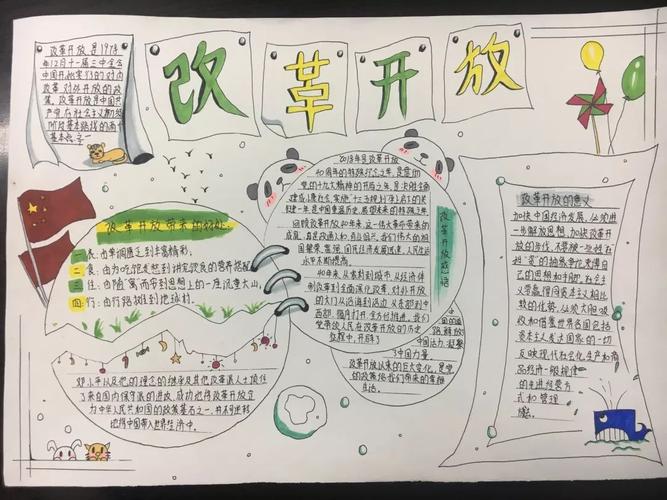 改革开放
改革开放 是1978
年12月十一届三中全会
中国开始实行的对内
改革 对外开放的政
策。改革开放是中国共
产党 在社会主义初级
阶段基本路线的两个
基本点之一
改革开放带来的好处
一 衣:由单调匮乏到丰富精彩;
二 食:由为吃饱发愁到讲究饮食的营养搭配
三 住:由随"寓"而安到思想上的一座沉重大山;
四 行:由行路祧到地球村。
邓小平以及他的理念的继承及其他改革派人士顶住
了来自国内保守派的进攻,成功地将改革开放立
为中华人民共和国的政策基石之一,并不可逆转
地将中国带入世界经济中。
2018年是改革开放
40周年的特殊纪念之年,是贯彻
党的十九大精神的开局之年,是决胜全面
建成小康社会 实施"十三五规划"承上启下的关
键一年,是中国重温历史、展望未来的特殊之年
回顾改革开放40年来,这一伟大革命带来的
成就,真是政通人和,百业俱兴,我们伟大的祖
国繁荣,富强,国民经济发展迅速,人民生活
水平不断提高。
40年来,从农村到城市,从经济体
制改革到全面深化改革,对外开放
的大门从沿海到沿边,从东部到中
西部,循序打开,全方位推进,我们
党带领人民在改革开放的历史
征程中,开辟了
改革开放感悟
中国力量
改革开放以来的巨大变化,是党
的政策给我们带来的幸福
生活。
改革开放的意义
加快中国经济发展,必须进
一步解放思想 加快改革开放
的步伐,不要被一些姓社
姓"资"的抽象争论束缚自
己的思想和手脚,社会主
义要赢得同资本主义相比
较的优势,必须大胆吸
收和借鉴世界各国包括
资本主义发达国家的一切
反映现代社会化生产和商
品经济一般规律
的先进经营方
式和管理